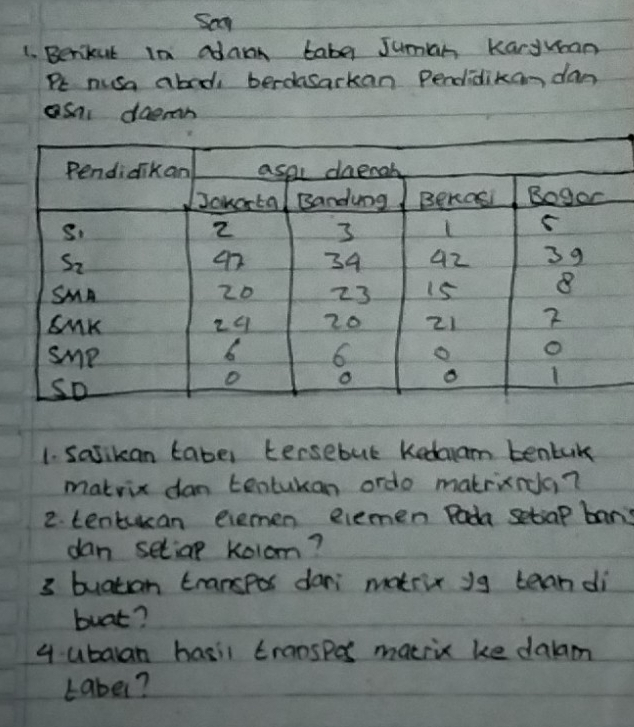 Soal
1. Berikut ini adalah tabel Jumlah karyawan
Pt nusa abadi berdasarkan Pendidikan dan
asal daerah
Pendidikan asal daerah
Jakarta Bandung Bekasi Bogor
S1 2 3 1 5
S2 47 34 42 39
SMA 20 23 15 8
SMK 29 20 21 7
SMP 6 6 0 0
SD 0 0 0 1
1. Sajikan tabel tersebut kedalam bentuk
matrix dan tentukan ordo matrixnya?
2. tentukan elemen elemen Pada setiap baris
dan setiap kolom?
3 buatlah transpos dari matrix yg telah di
buat?
4. ubalah hasil transpos matrix ke dalam
tabel?